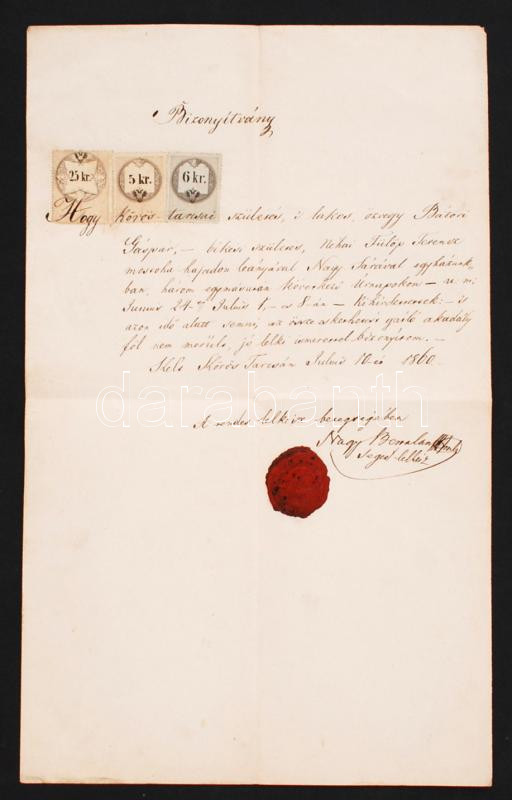 Bizonyítvány
25 kr. 5 kr. 6 kr.
Hogy körös-tarcsai születés, 's lakos, özvegy Bátori
Gáspár, – békési születés, Néhai Fülöp Ferencz
mostoha hajadon leányával Nagy Sárával egyházunk-
ban, három egymásután következő Ünnapokon – u. m.
Junius 24-n Julius 1, – s 8-án – Kihirdettettek: 's
azon idő alatt semmi, az össze eskethetést gátló akadály
föl nem merülе, jó lelki ismerettel bizonyítom. –
Kelt Körös Tarcsán Julius 10-én 1860.
darabanth
A rendes lelkész betegségében
Nagy
Seged-lelkész